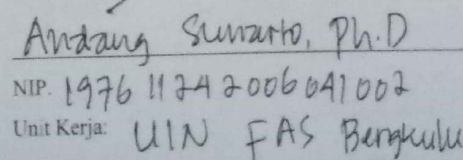 Andang Sunarto, Ph.D
NIP. 197611242006041002
Unit Kerja: UIN FAS Bengkulu